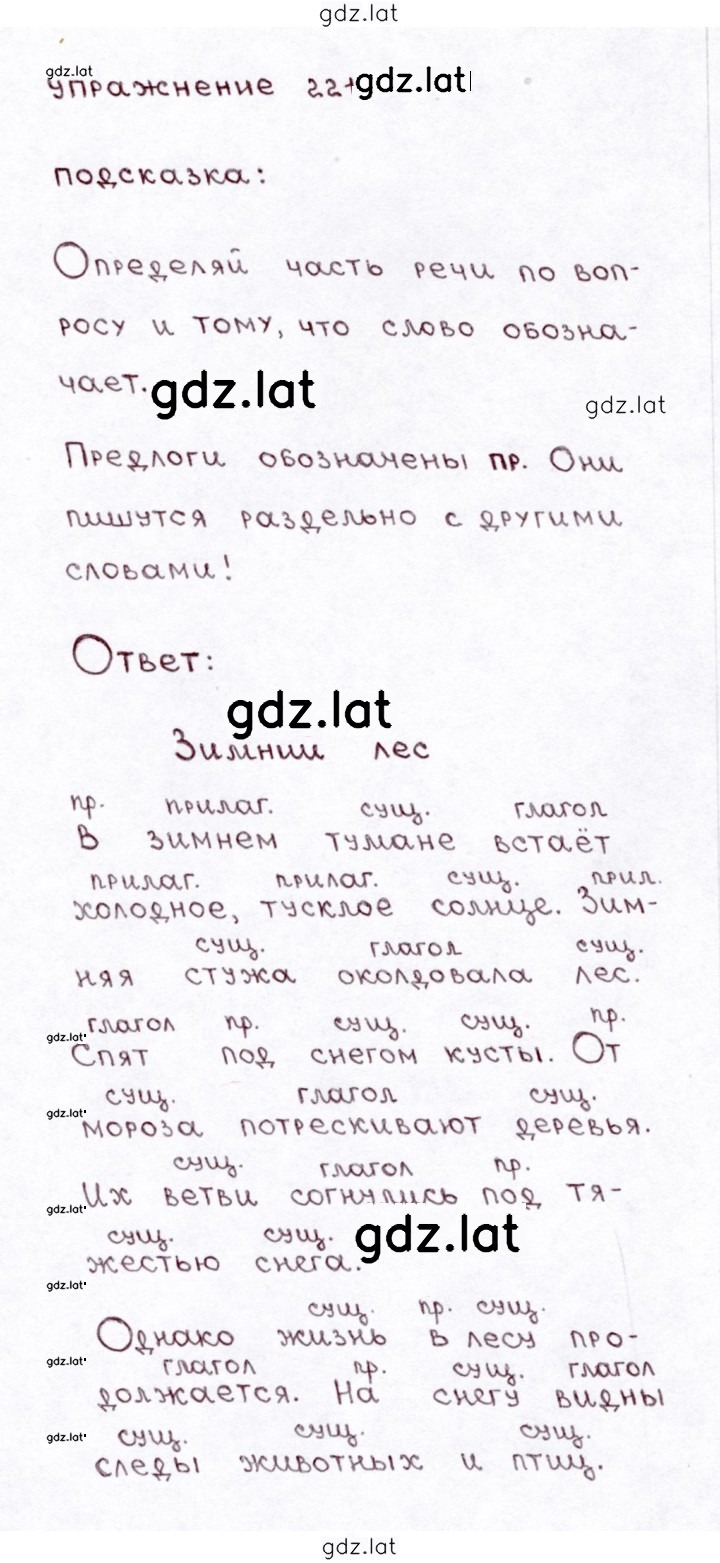 gdz.lat
gdz.lat
упражнение 221 gdz.lat
подсказка:
Определяй часть речи по воп-
росу и тому, что слово обозна-
чает. gdz.lat
gdz.lat
Предлоги обозначены пр. Они
пишутся раздельно с другими
словами!
Ответ:
gdz.lat
Зимний лес
пр. прилаг. сущ. глагол
В зимнем тумане встаёт
прилаг. прилаг. сущ. прил.
холодное, тусклое солнце. Зим-
сущ. глагол сущ.
няя стужа околдовала лес.
глагол пр. сущ. сущ. пр.
gdz.lat
Спят под снегом кусты. От
сущ. глагол сущ.
gdz.lat
мороза потрескивают деревья.
сущ. глагол пр.
Их ветви согнулись под тя-
gdz.lat
сущ. сущ. gdz.lat
жестью снега.
gdz.lat
сущ. пр. сущ.
Однако жизнь в лесу про-
gdz.lat
глагол пр. сущ. глагол
должается. На снегу видны
gdz.lat
сущ. сущ. сущ.
следы животных и птиц.
gdz.lat